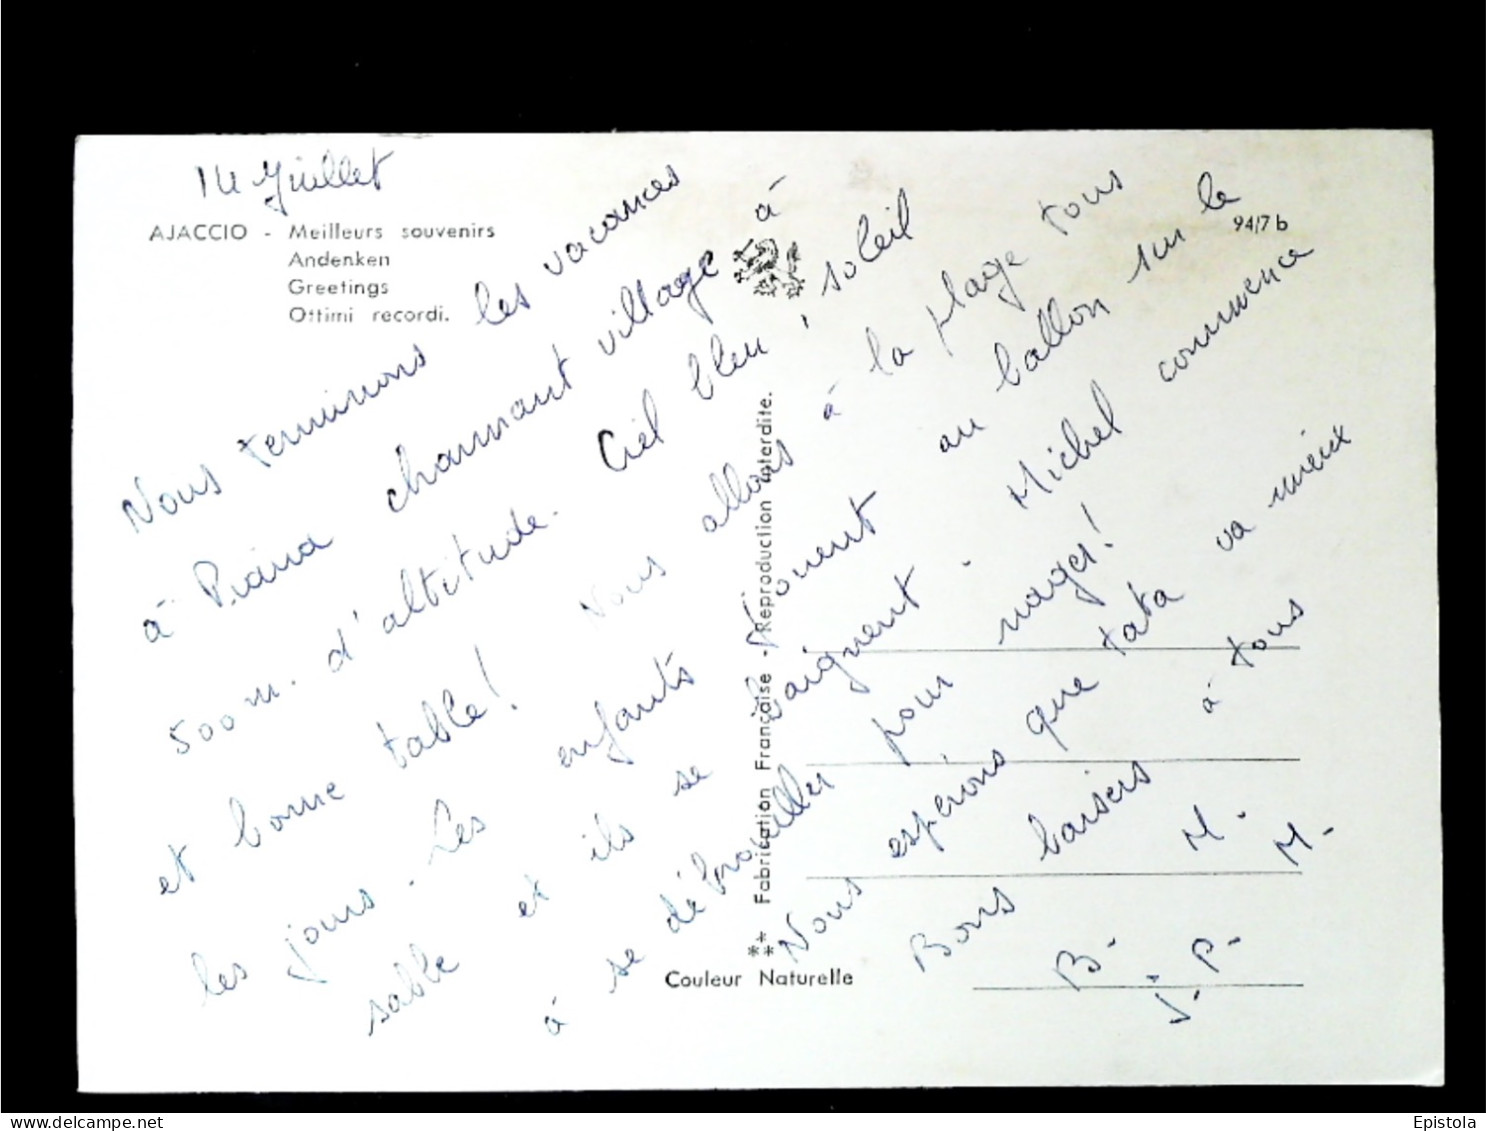 14 Juillet
AJACCIO - Meilleurs souvenirs
Andenken
Greetings
Ottimi recordi.
94/7 b
Nous terminons les vacances
à Piana charmant village à
500 m. d'altitude. Ciel bleu, soleil
et bonne table! Nous allons à la plage tous
les jours. Les enfants jouent au ballon sur le
sable et ils se baignent. Michel commence
à se débrouiller pour nager!
Nous espérons que tata va mieux
Bons baisers à tous
B. M. M.
J. P.
Fabrication Française - Reproduction interdite.
Couleur Naturelle
Epistola
delcampe.net